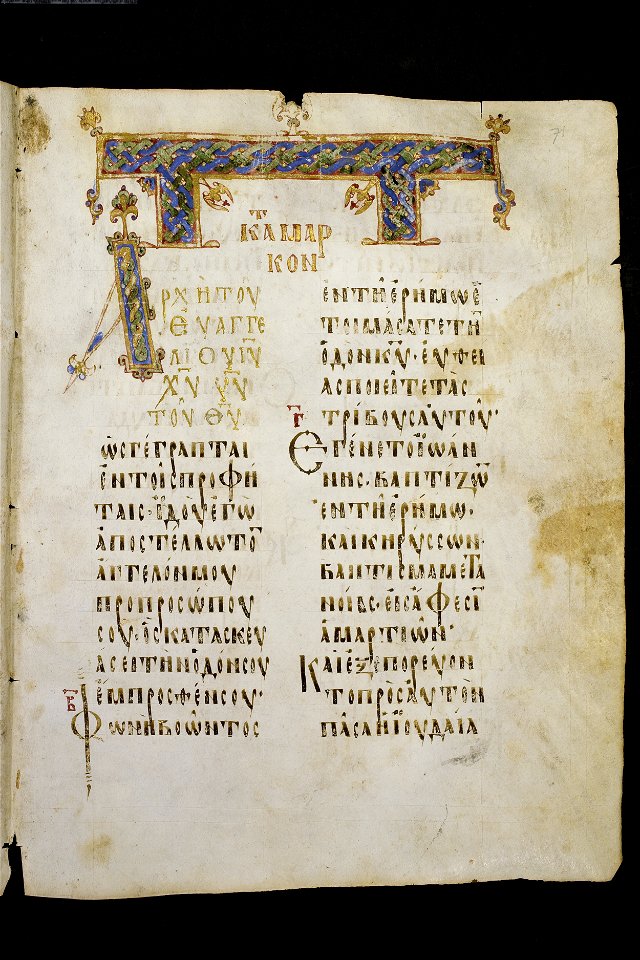 71
ΚΑΤ ΜΑΡ
ΚΟΝ
ἈΡΧῊ ΤΟΥ
ΕΥΑΓΓΕ
ΛΙΟΥ ΙΥ
ΧΥ ΥΥ
ΤΟΥ ΘΥ
ὩΣ ΓΈΓΡΑΠΤΑΙ
ἘΝ ΤΟΙΣ ΠΡΟΦΗ
ΤΑΙΣ· ἸΔΟῪ ἘΓῺ
ἈΠΟΣΤΕΛΛΩ ΤΟ̅
ἈΓΓΕΛΟΝ ΜΟΥ
ΠΡΟ ΠΡΟΣΏΠΟΥ
ΣΟΥ· ὋΣ ΚΑΤΑΣΚΕΥ
ΆΣΕΙ ΤῊΝ ὉΔΌΝ ΣΟΥ
ἜΜΠΡΟΣΘΕΝ ΣΟΥ·
Β
ΦΩΝῊ ΒΟΩΝΤΟΣ
ἘΝ ΤΗ ἘΡΉΜΩ Ἑ
ΤΟΙΜΆΣΑΤΕ ΤΗ̅
ὉΔΟΝ ΚΥ· ΕΥΘΕΙ
ΑΣ ΠΟΙΕΙΤΕ ΤΑΣ
ΤΡΊΒΟΥΣ ΑΥΤΟΥ·
Γ
ἘΓΈΝΕΤΟ ἸΩΆΝ
ΝΗΣ· ΒΑΠΤΊΖΩ̅
ἘΝ ΤΗ ἘΡΉΜΩ·
ΚΑῚ ΚΗΡΎΣΣΩΝ·
ΒΆΠΤΙΣΜΑ ΜΕΤΑ
ΝΟΊΑΣ· ΕἸΣ ἌΦΕΣΙ̅
ἉΜΑΡΤΙΩΝ·
ΚΑῚ ἘΞΕΠΟΡΕΎΕ
ΤΟ ΠΡῸΣ ΑΥΤῸΝ
ΠΑΣΑ Ἡ ἸΟΥΔΑΊΑ